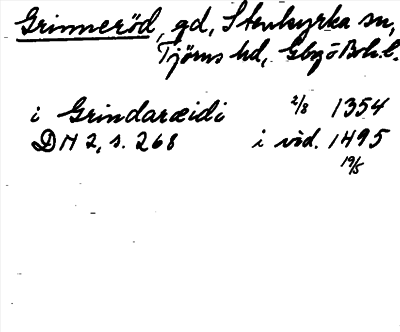 Grinneröd, gd, Stenkyrka sn,
Tjörns hd, Gbg o Boh. l.
i Grindaræidi 2/8 1354
DN 2, s. 268 i vid. 1495
19/5